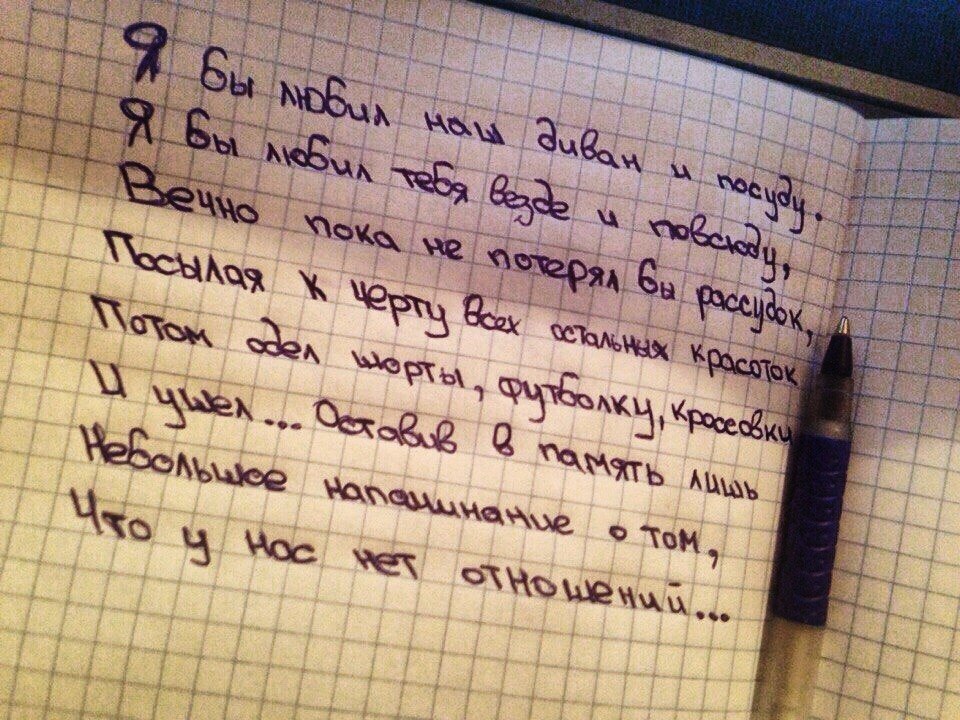 Я бы любил наш диван и посуду.
Я бы любил тебя везде и повсюду,
Вечно пока не потерял бы рассудок,
Посылая к черту всех остальных красоток
Потом одел шорты, футболку, кроссовки
И ушел... Оставив в память лишь
Небольшое напоминание о том,
Что у нас нет отношений...